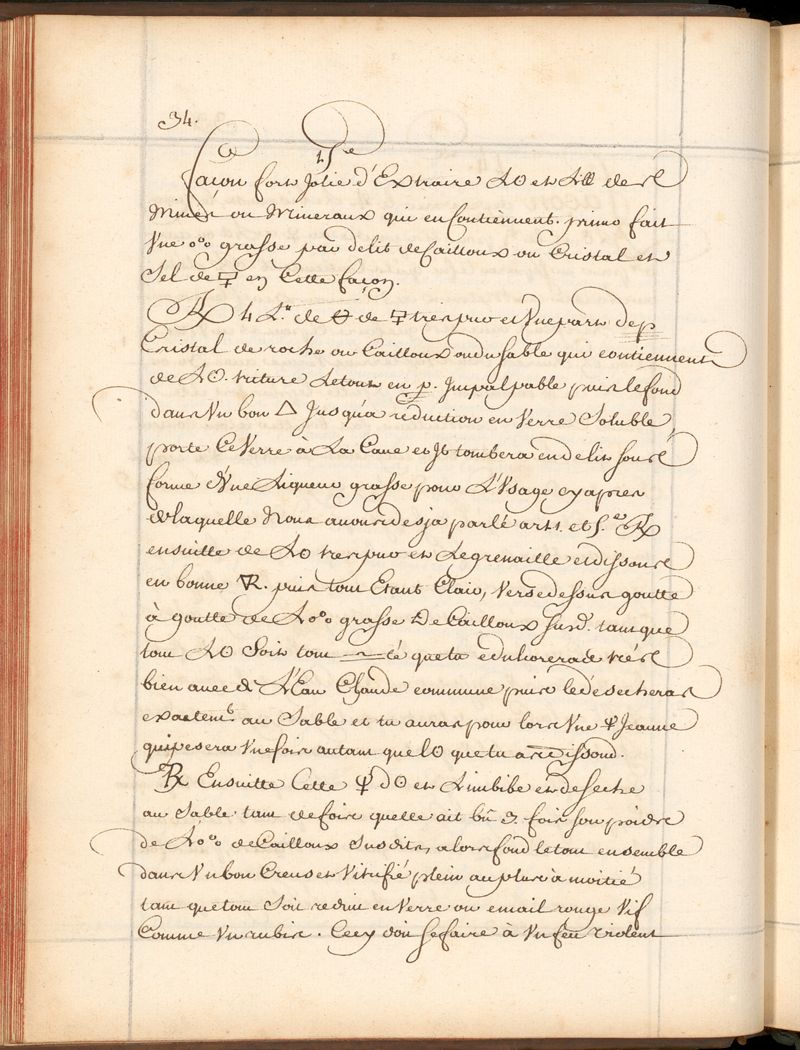 34.
4.5e
Façon fort Jolie d'Extraire L☉ et des
Mines ou Mineraux qui en Contiennent. primo fait
Vne °°° grasse par delit de Cailloux ou Cristal et
Sel de 🜿 en Cette façon.
℞ 4 de de 🜿 tres pur et Vne part de
Cristal de roche ou Cailloux ou du sable qui contiennent
de L☉. triture Letout en p. Jmpalpable puis le fond
dans Vn bon △ Jusqu'a reduction en Verre Soluble,
porte Ce Verre à La Caue et Jl tombera en delit sous
forme d'Vne Liqueur grasse pour L'Vsage cy apres
de laquelle Nous auons desja parlé art 1. et 5.e ℞
ensuitte de L☉ tres pur et Le grenaille et dissous
en bonne 🜆. puis tout Etant Clair, Verse dessus goutte
à goutte de L°°° grasse De Cailloux susd. tant que
tout L☉ Soit tout té que tu edulcoreras tres
bien auec de L'Eau Chaude commune puis le désecheras
exactemt. au Sable et tu auras pour lors Vne 🜍 Jeaune
qui pesera Vne fois autant que L☉ que tu as dissoud.
℞ Ensuitte Cette 🜍 d☉ et Limbibe et desseche
au Sable tant de fois quelle ait bû 3. fois son poids
de L°°° de Cailloux Susdits, alors fond le tout ensemble
dans Vn bon Creuset Vitrifié plein au plus à moitié
tant que tout Soit reduit en Verre ou email rouge Vif
Comme Vn rubis. Cecy doit se faire à Vn feu violent